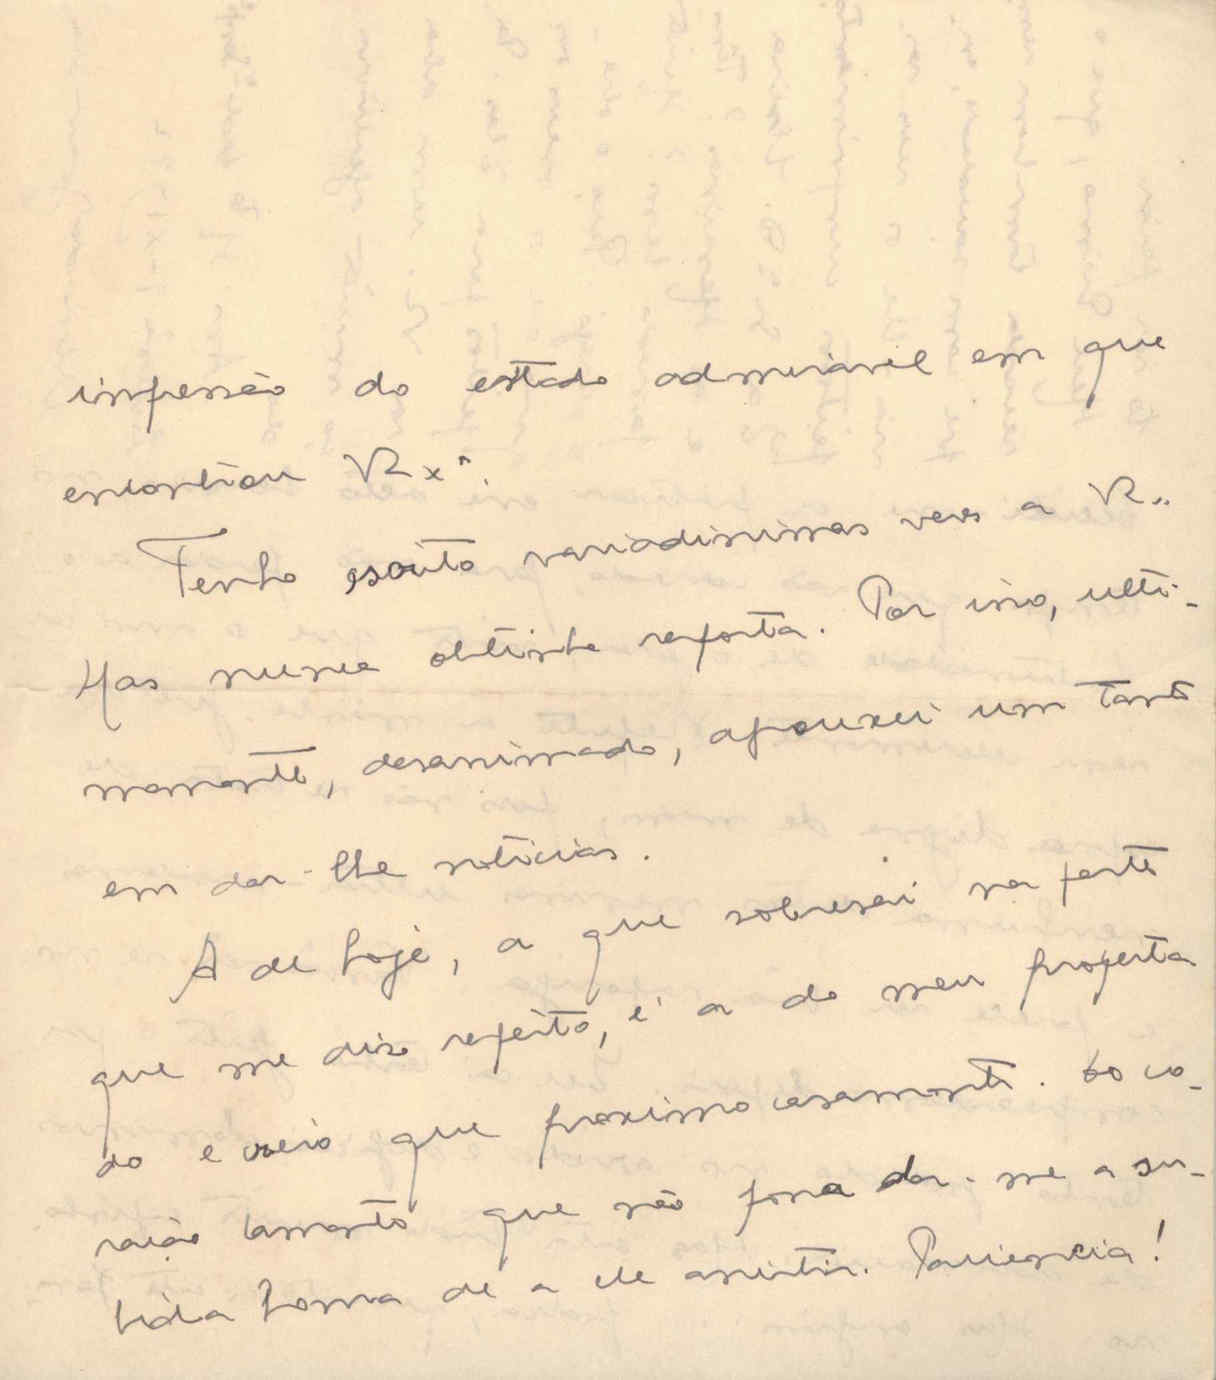 impressão do estado admirável em que
encontrou V. Ex.ª.
Tenho escrito variadissimas vezes a V..
Mas nunca obtinha resposta. Por isso, ulti-
mamente, desanimado, afrouxei um tanto
em dar-lhe noticias.
A de hoje, a que sobresai na parte
que me diz respeito, é a do meu projecta
do e creio que proximo casamento. Do co-
ração lamento que não possa dar-me a su-
bida honra de a ele assistir. Paciencia!